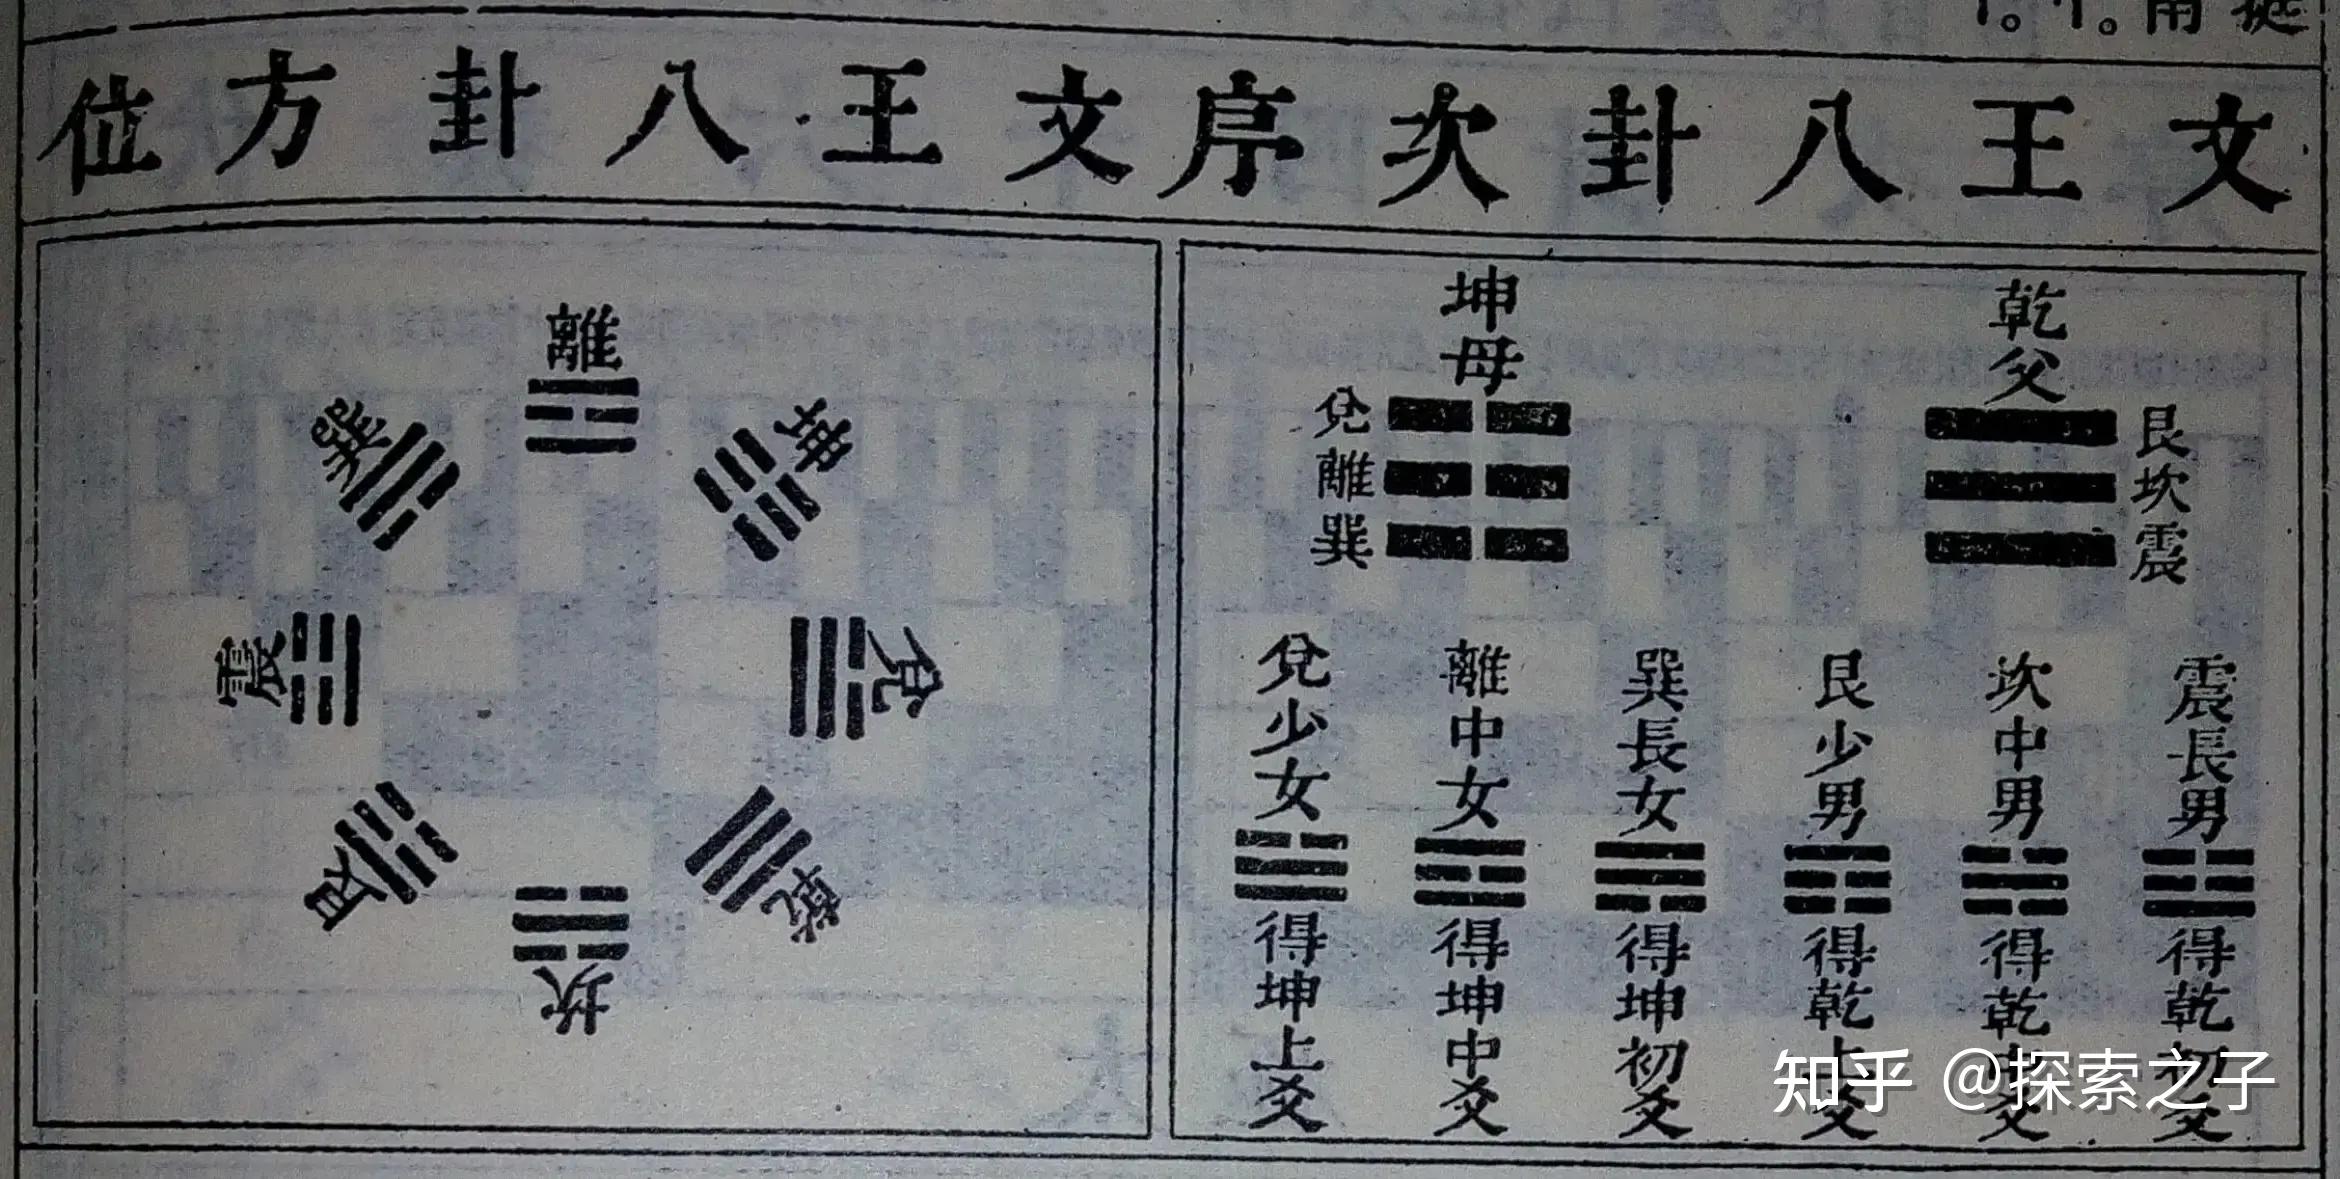 文王八卦次序
文王八卦方位
乾父
艮
坎
震
坤母
兌
離
巽
震長男
得乾初爻
坎中男
得乾中爻
艮少男
得乾上爻
巽長女
得坤初爻
離中女
得坤中爻
兌少女
得坤上爻
離
坤
兌
乾
坎
艮
震
巽
知乎 @探索之子